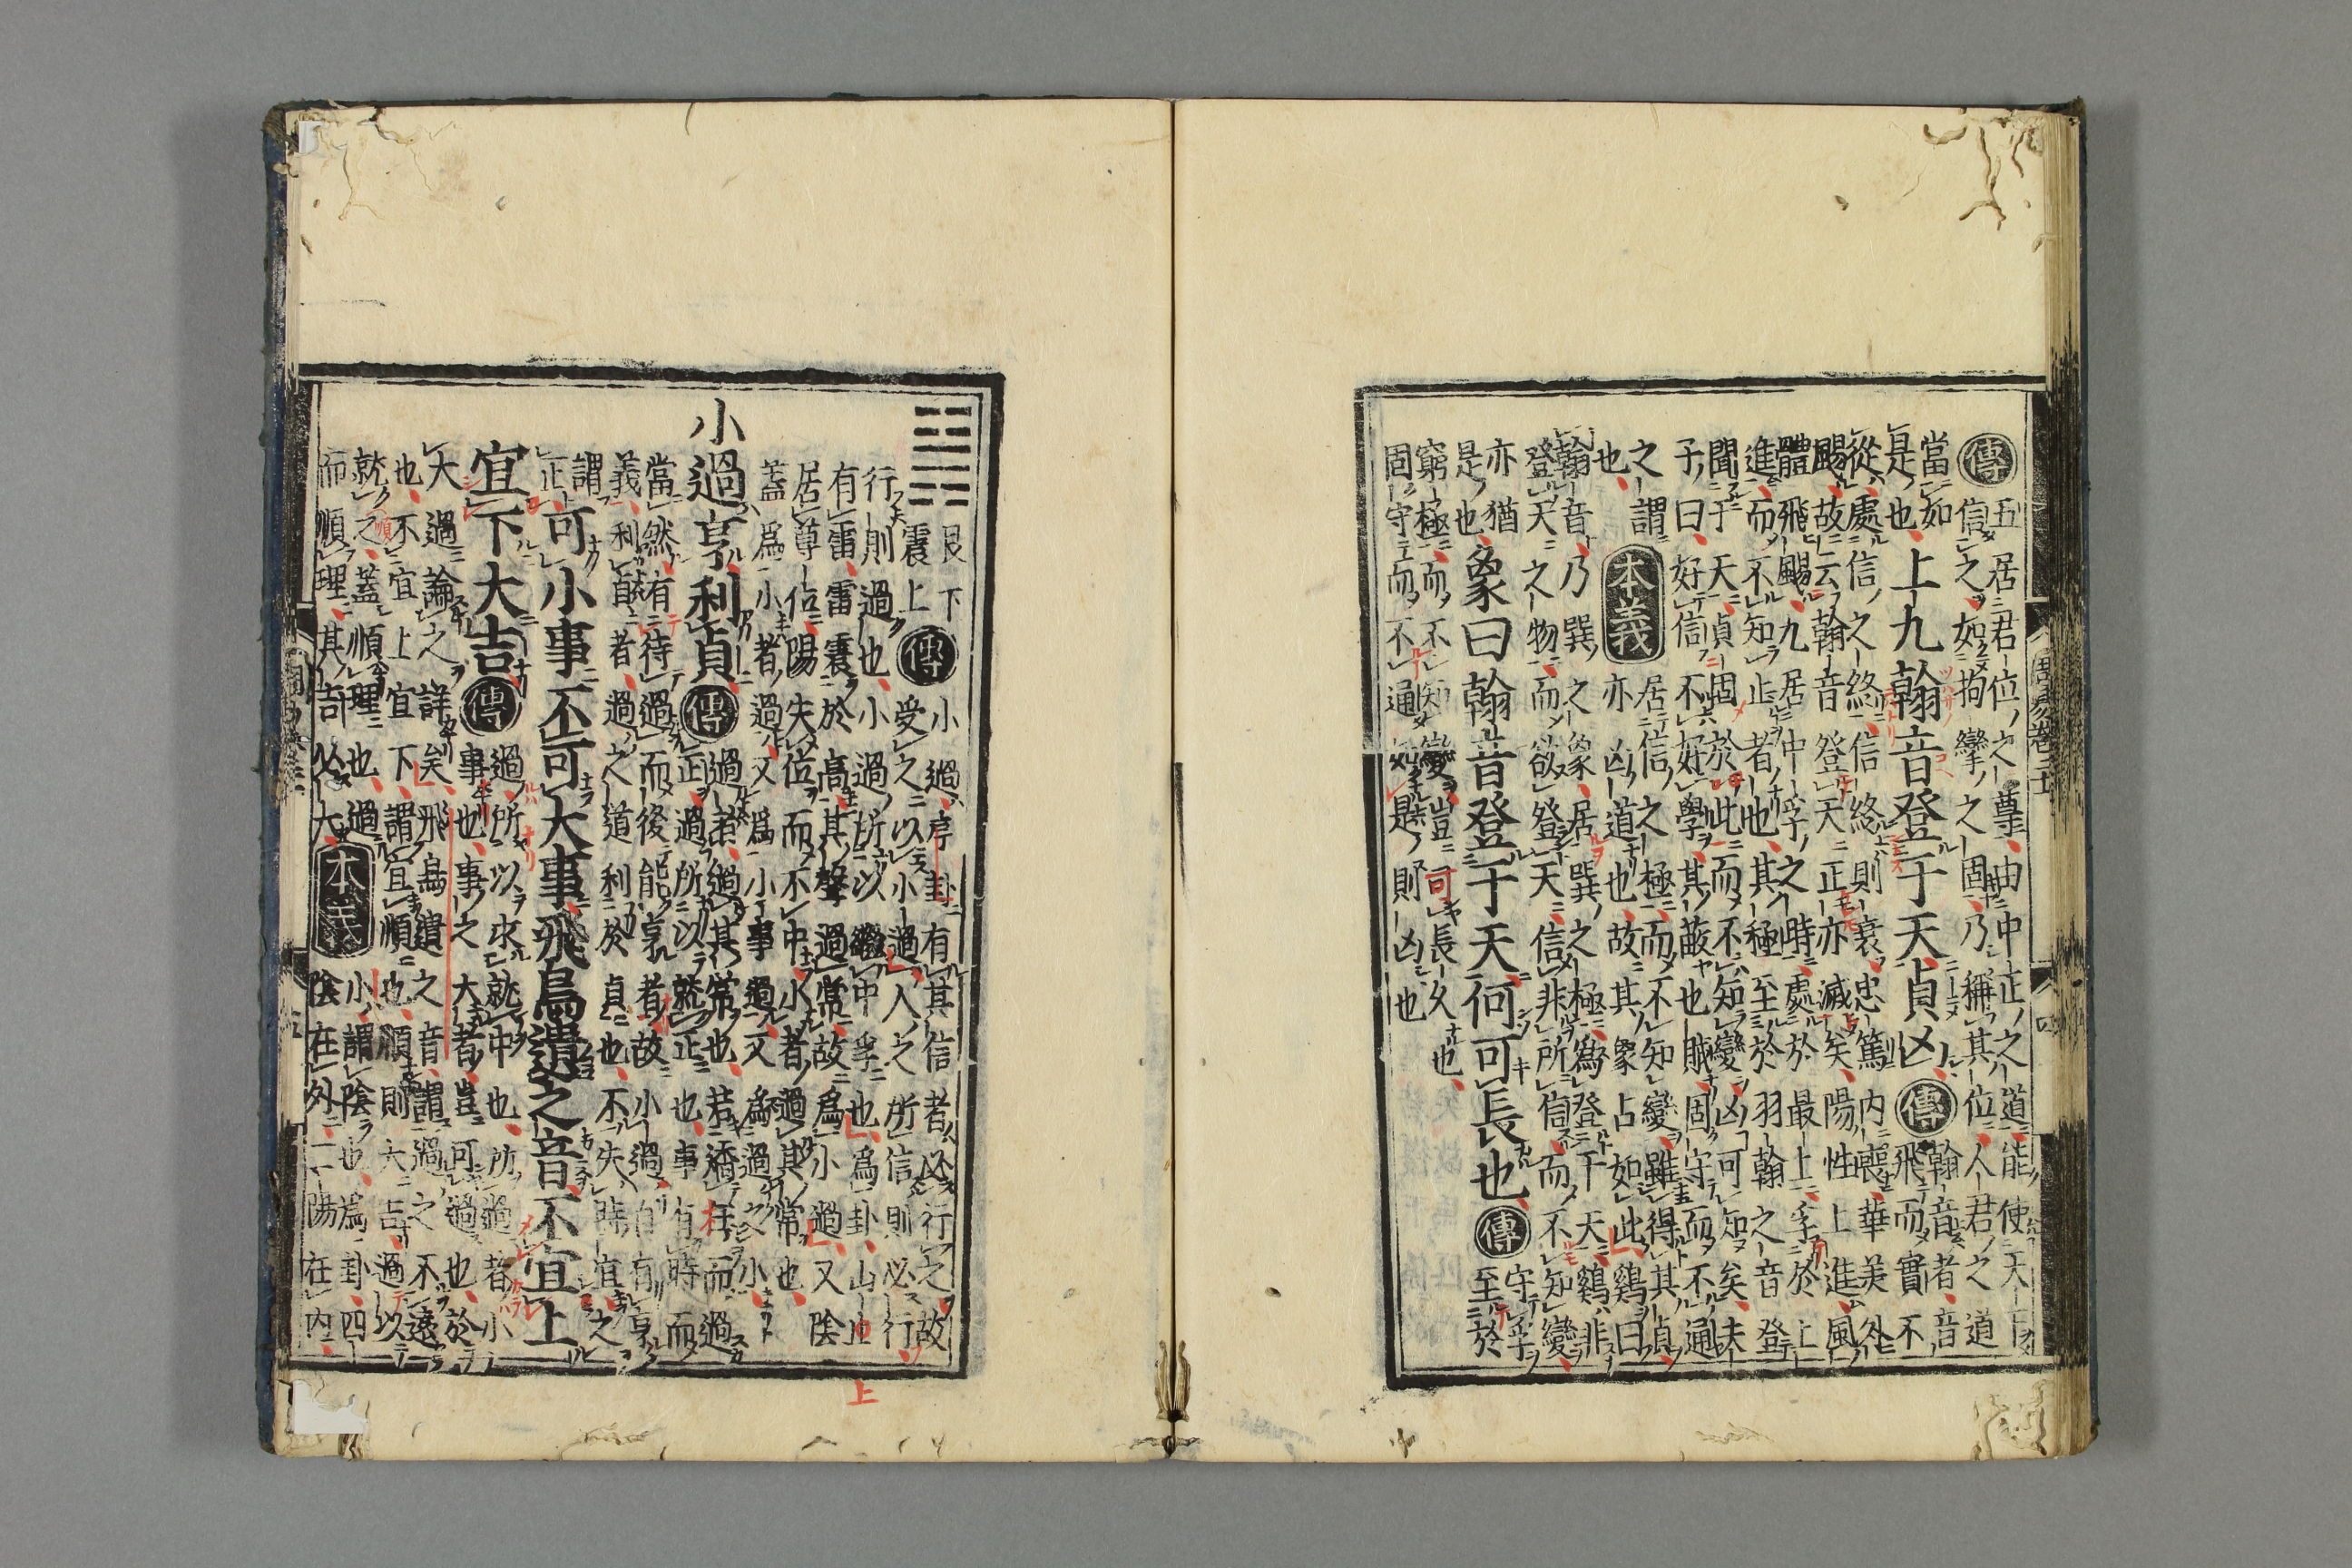 周易卷二十
四
傳
五居君位之尊由中正之道能使天下
信之如拘攣之固乃稱其位人君之道
當如
是也
上九翰音登于天貞凶
傳
翰音者音
飛而實不
從處信之終信終則衰忠篤内喪華美外
颺故云翰音登天正亦滅矣陽性上進風
體飛颺九居中孚之時處於最上孚於上
進而不知止者也其極至於羽翰之音登
聞于天貞固於此而不知變凶可知矣夫
子曰好信不好學其蔽也賊固守而不通
之謂
也
本義
居信之極而不知變雖得其貞
亦凶道也故其象占如此鷄曰
翰音乃巽之象居巽之極為登于天鷄非
登天之物而欲登天信非所信而不知變
亦猶
是也
象曰翰音登于天何可長也
傳
守孚
至於
窮極而不知變豈可長久也
固守而不通如是則凶也
䷽
艮下
震上
傳
小過序卦有其信者必行之故
受之以小過人之所信則必行
行則過也小過所以繼中孚也為卦山止
有雷雷震於高其聲過常故為小過又陰
居尊位陽失位而不中小者過其常也
蓋為小者過又為小事過又為過之小
小過亨利貞
傳
過者過其常也若矯枉而過
正過所以就正也事有時而
當然有待過而後能亨者故小過自有亨
義利貞者過之道利於貞也不失時宜之
謂
正
可小事不可大事飛鳥遺之音不宜上
宜下大吉
傳
過所以求就中也所過者小
事也事之大者豈可過也於
大過論之詳矣飛鳥遺之音謂過之不遠
也不宜上宜下謂宜順也順則大吉過以
就之蓋順理也過
而順理其吉必大
本義
小謂陰也為卦四
陰在外二陽在内
上